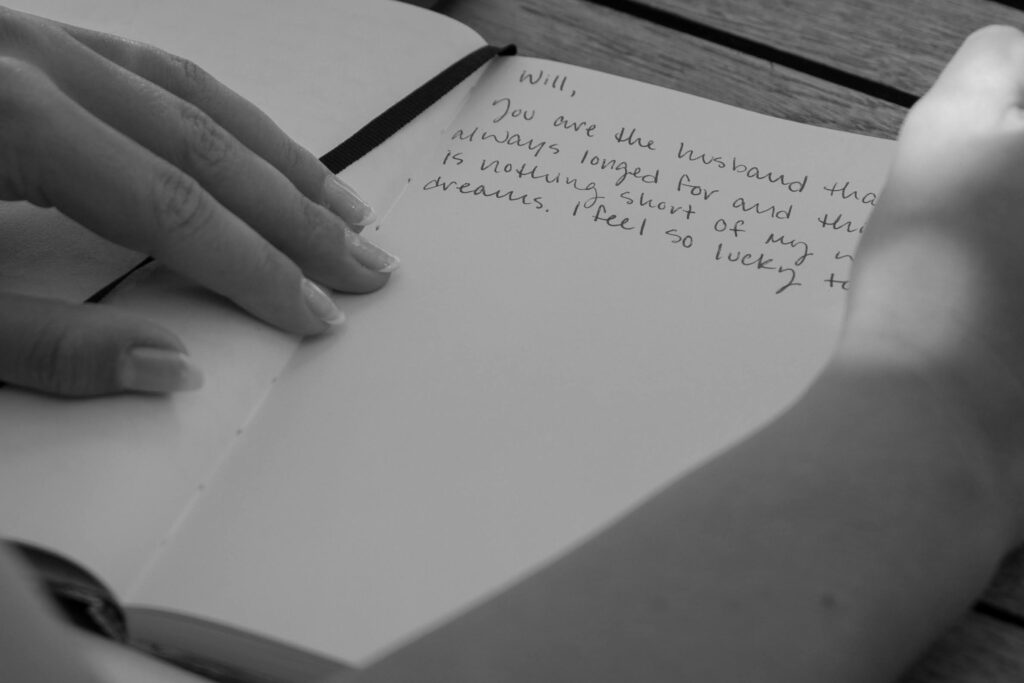 Will,
You are the husband tha
always longed for and thi
is nothing short of my
dreams. I feel so lucky to